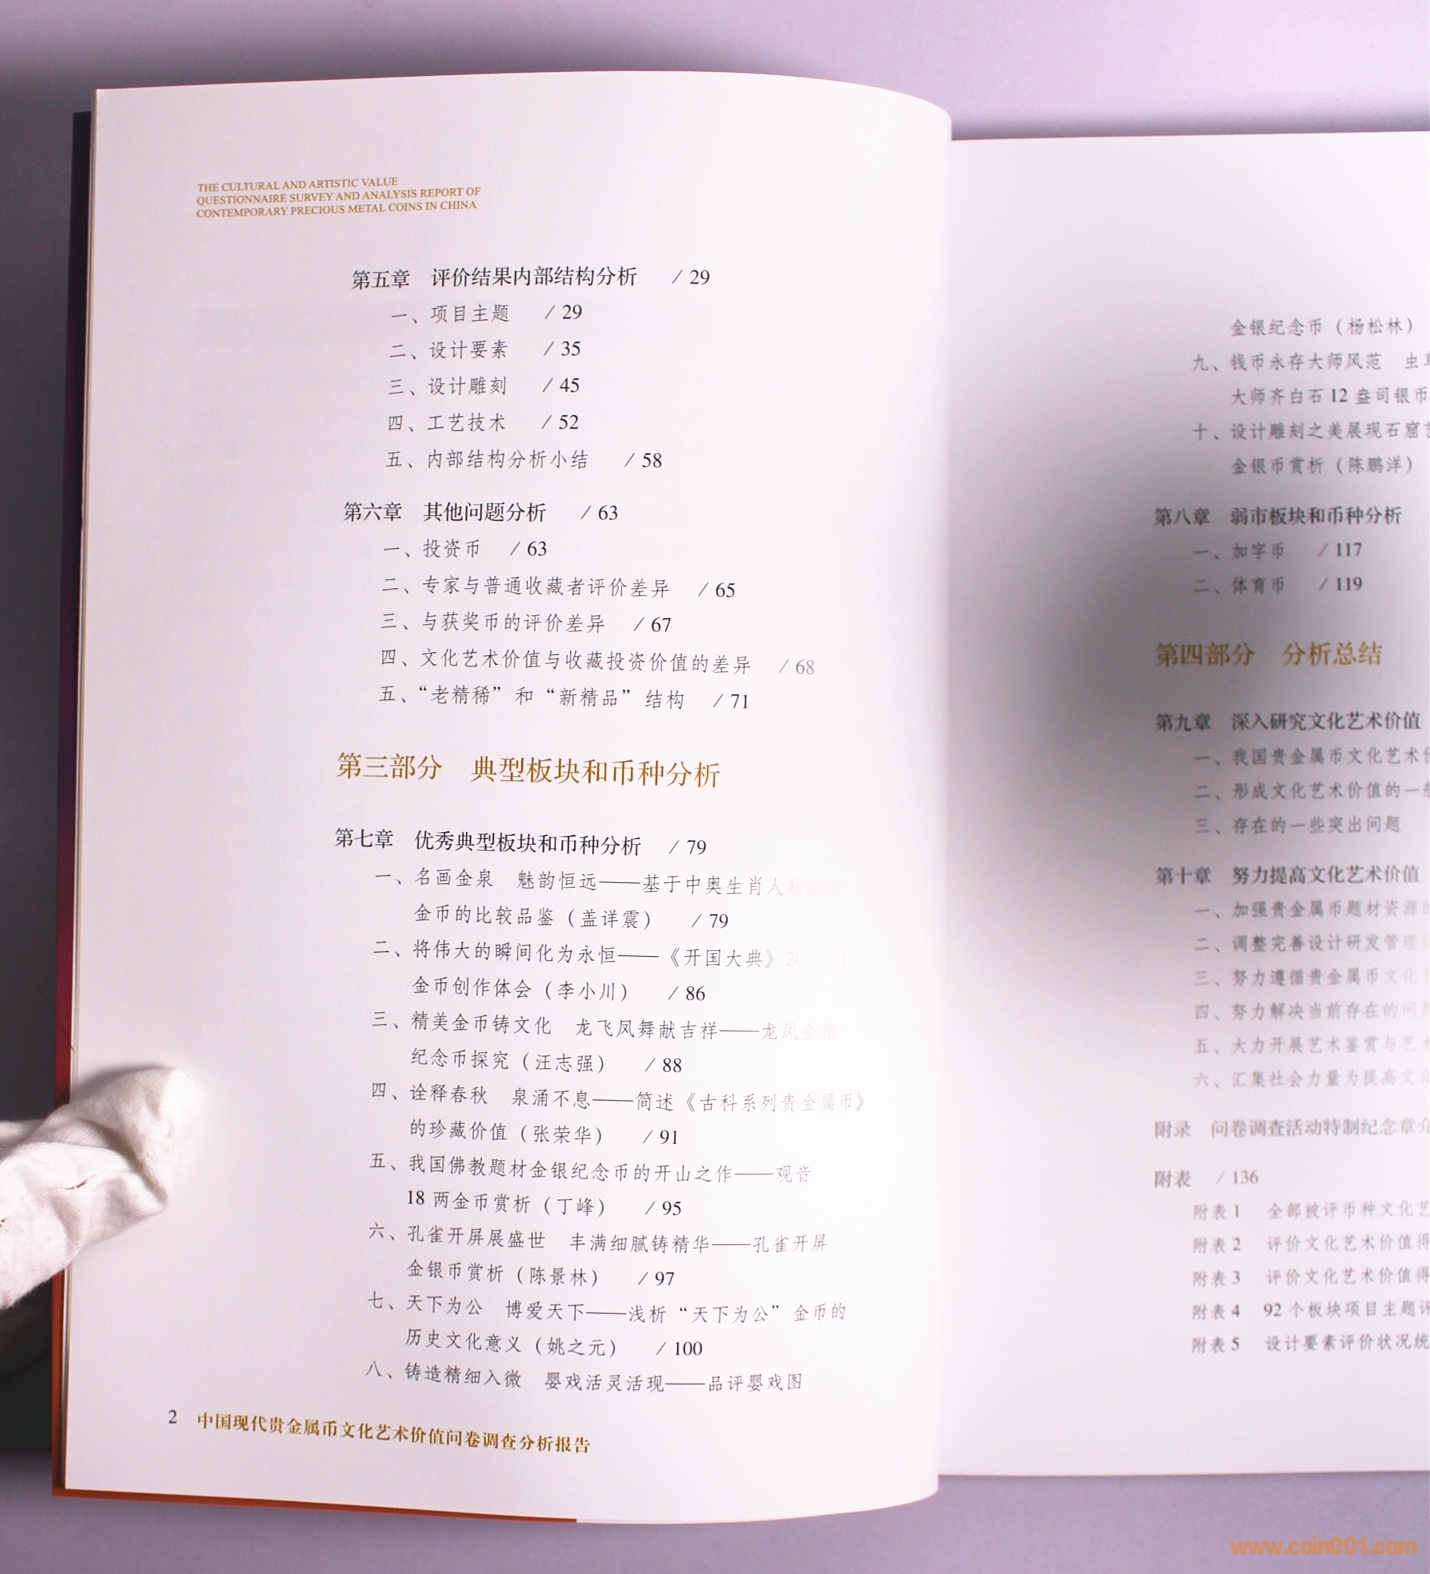 THE CULTURAL AND ARTISTIC VALUE
QUESTIONNAIRE SURVEY AND ANALYSIS REPORT OF
CONTEMPORARY PRECIOUS METAL COINS IN CHINA
第五章 评价结果内部结构分析 / 29
一、项目主题 / 29
二、设计要素 / 35
三、设计雕刻 / 45
四、工艺技术 / 52
五、内部结构分析小结 / 58
第六章 其他问题分析 / 63
一、投资币 / 63
二、专家与普通收藏者评价差异 / 65
三、与获奖币的评价差异 / 67
四、文化艺术价值与收藏投资价值的差异 / 68
五、“老精稀”和“新精品”结构 / 71
第三部分 典型板块和币种分析
第七章 优秀典型板块和币种分析 / 79
一、名画金泉 魅韵恒远——基于中奥生肖人
金币的比较品鉴（盖详震） / 79
二、将伟大的瞬间化为永恒——《开国大典》
金币创作体会（李小川） / 86
三、精美金币铸文化 龙飞凤舞献吉祥——龙凤
纪念币探究（汪志强） / 88
四、诠释春秋 泉涌不息——简述《古科系列贵金属币》
的珍藏价值（张荣华） / 91
五、我国佛教题材金银纪念币的开山之作——观音
18 两金币赏析（丁峰） / 95
六、孔雀开屏展盛世 丰满细腻铸精华——孔雀开屏
金银币赏析（陈景林） / 97
七、天下为公 博爱天下——浅析“天下为公”金币的
历史文化意义（姚之元） / 100
八、铸造精细入微 婴戏活灵活现——品评婴戏图
2 中国现代贵金属币文化艺术价值问卷调查分析报告
金银纪念币（杨松林）
九、钱币永存大师风范 虫
大师齐白石 12 盎司银币
十、设计雕刻之美展现石窟
金银币赏析（陈鹏洋）
第八章 弱市板块和币种分析
一、加字币 / 117
二、体育币 / 119
第四部分 分析总结
第九章 深入研究文化艺术价值
一、我国贵金属币文化艺术
二、形成文化艺术价值的一
三、存在的一些突出问题
第十章 努力提高文化艺术价值
一、加强贵金属币题材资源
二、调整完善设计研发管理
三、努力遵循贵金属币文化
四、努力解决当前存在的问
五、大力开展艺术鉴赏与艺
六、汇集社会力量为提高文
附录 问卷调查活动特制纪念章介
附表 / 136
附表 1 全部被评币种文化艺
附表 2 评价文化艺术价值得
附表 3 评价文化艺术价值得
附表 4 92 个板块项目主题评
附表 5 设计要素评价状况统
www.coin001.com